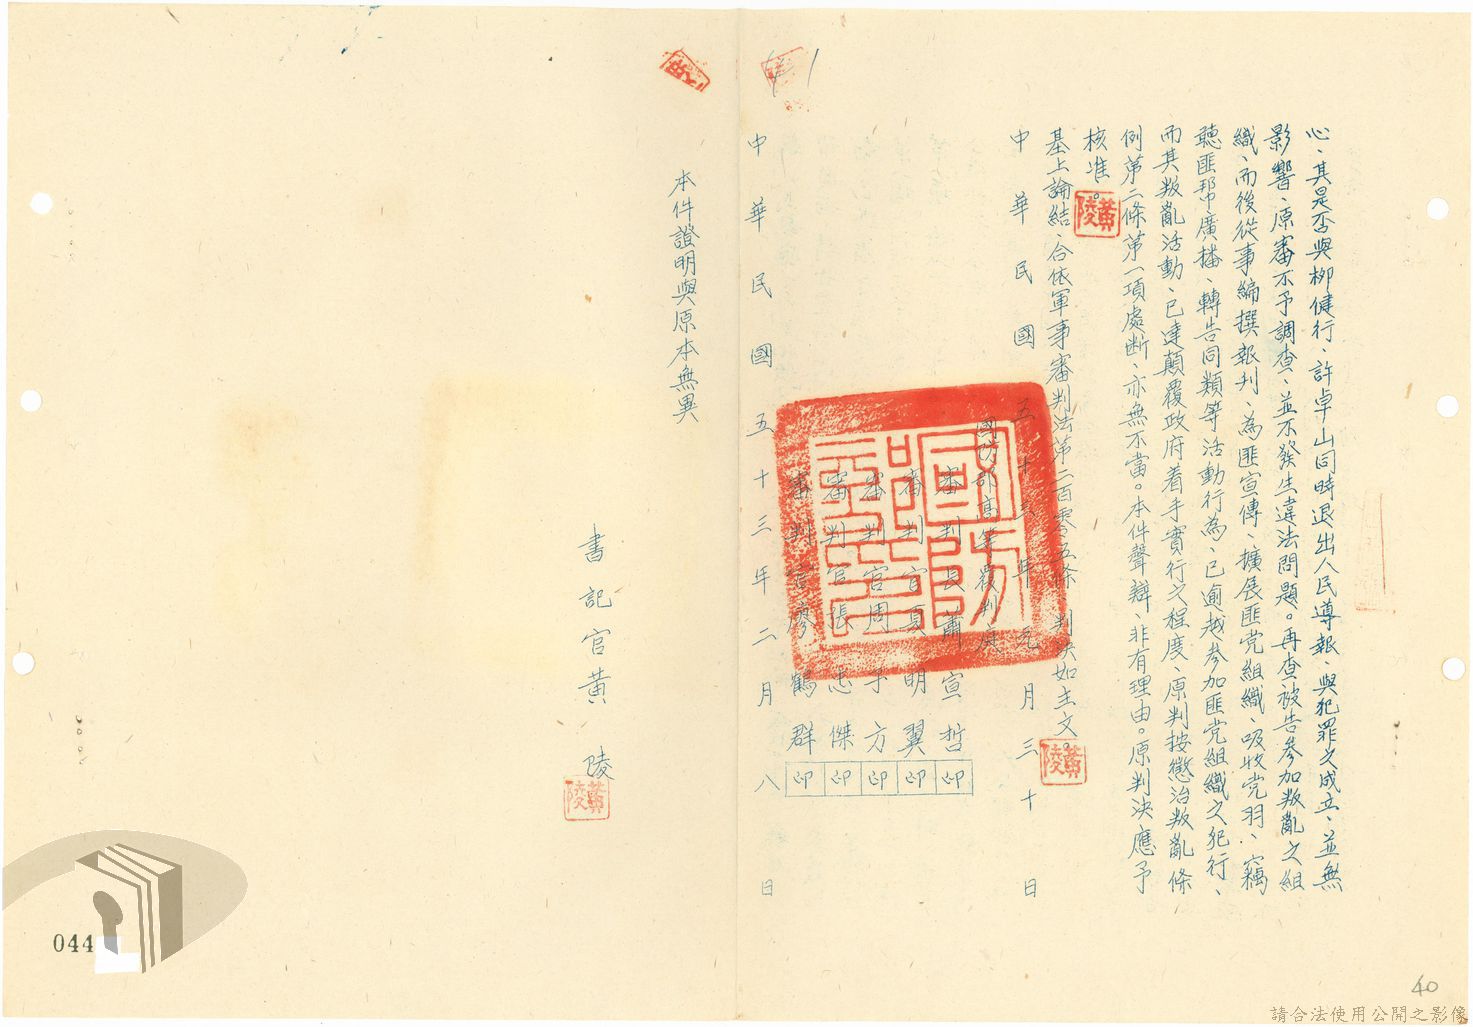 心、其是否與柳健行、許卓山同時退出人民導報、與犯罪之成立、並無
影響、原審不予調查、並不發生違法問題。再查被告參加叛亂之組
織、而後從事編撰報刊、為匪宣傳、擴展匪党組織、吸收党羽、竊
聽匪幇廣播、轉告同類等活動行為、已逾越參加匪党組織之犯行、
而其叛亂活動、已達顛覆政府着手實行之程度、原判按懲治叛亂條
例第二條第一項處断、亦無不當。本件聲辯、非有理由。原判決應予
核准。
基上論結、合依軍事審判法第二百零五條判決如主文。
中華民國五十三年元月三十日
國防部高等覆判庭
審判長蕭宣哲印
審判官夏明翼印
審判官周子方印
審判官張忠傑印
審判官廖鶴群印
中華民國五十三年二月八日
本件證明與原本無異
書記官黃陵
黃陵
黃陵
黃陵
044
40
請合法使用公開之影像